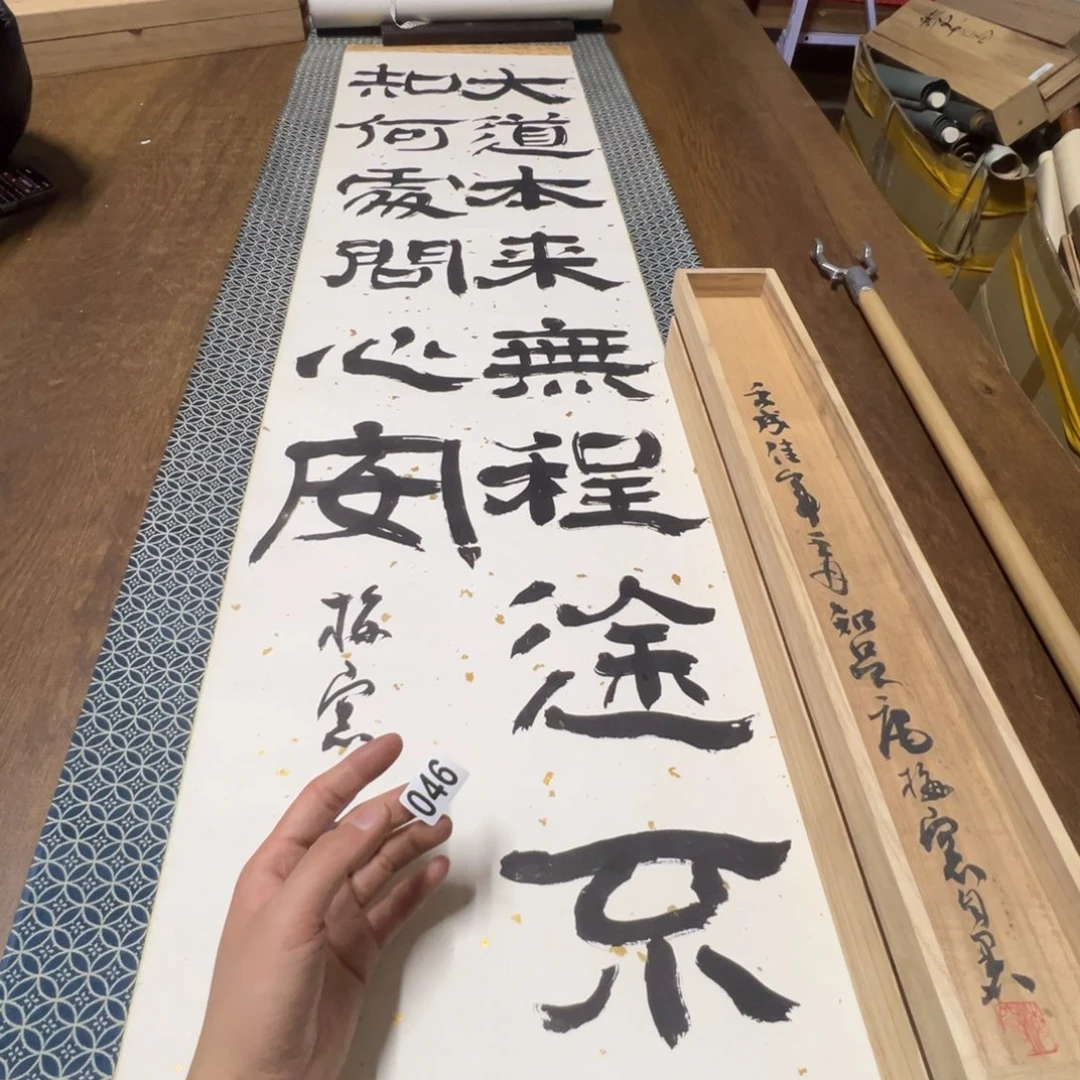 大道本来無程途不
知何處問心安
梅窓
046
知足庵梅窓自